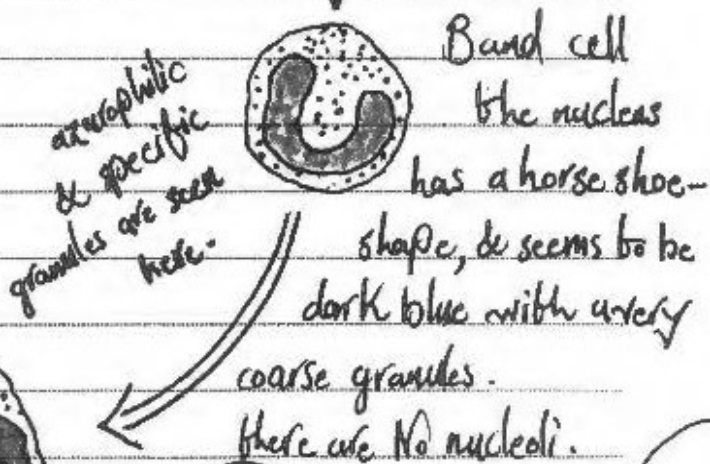 azurophilic
& specific
granules are seen
here.
Band cell
the nucleus
has a horse shoe-
shape, & seems to be
dark blue with a very
coarse granules.
there are No nucleoli.